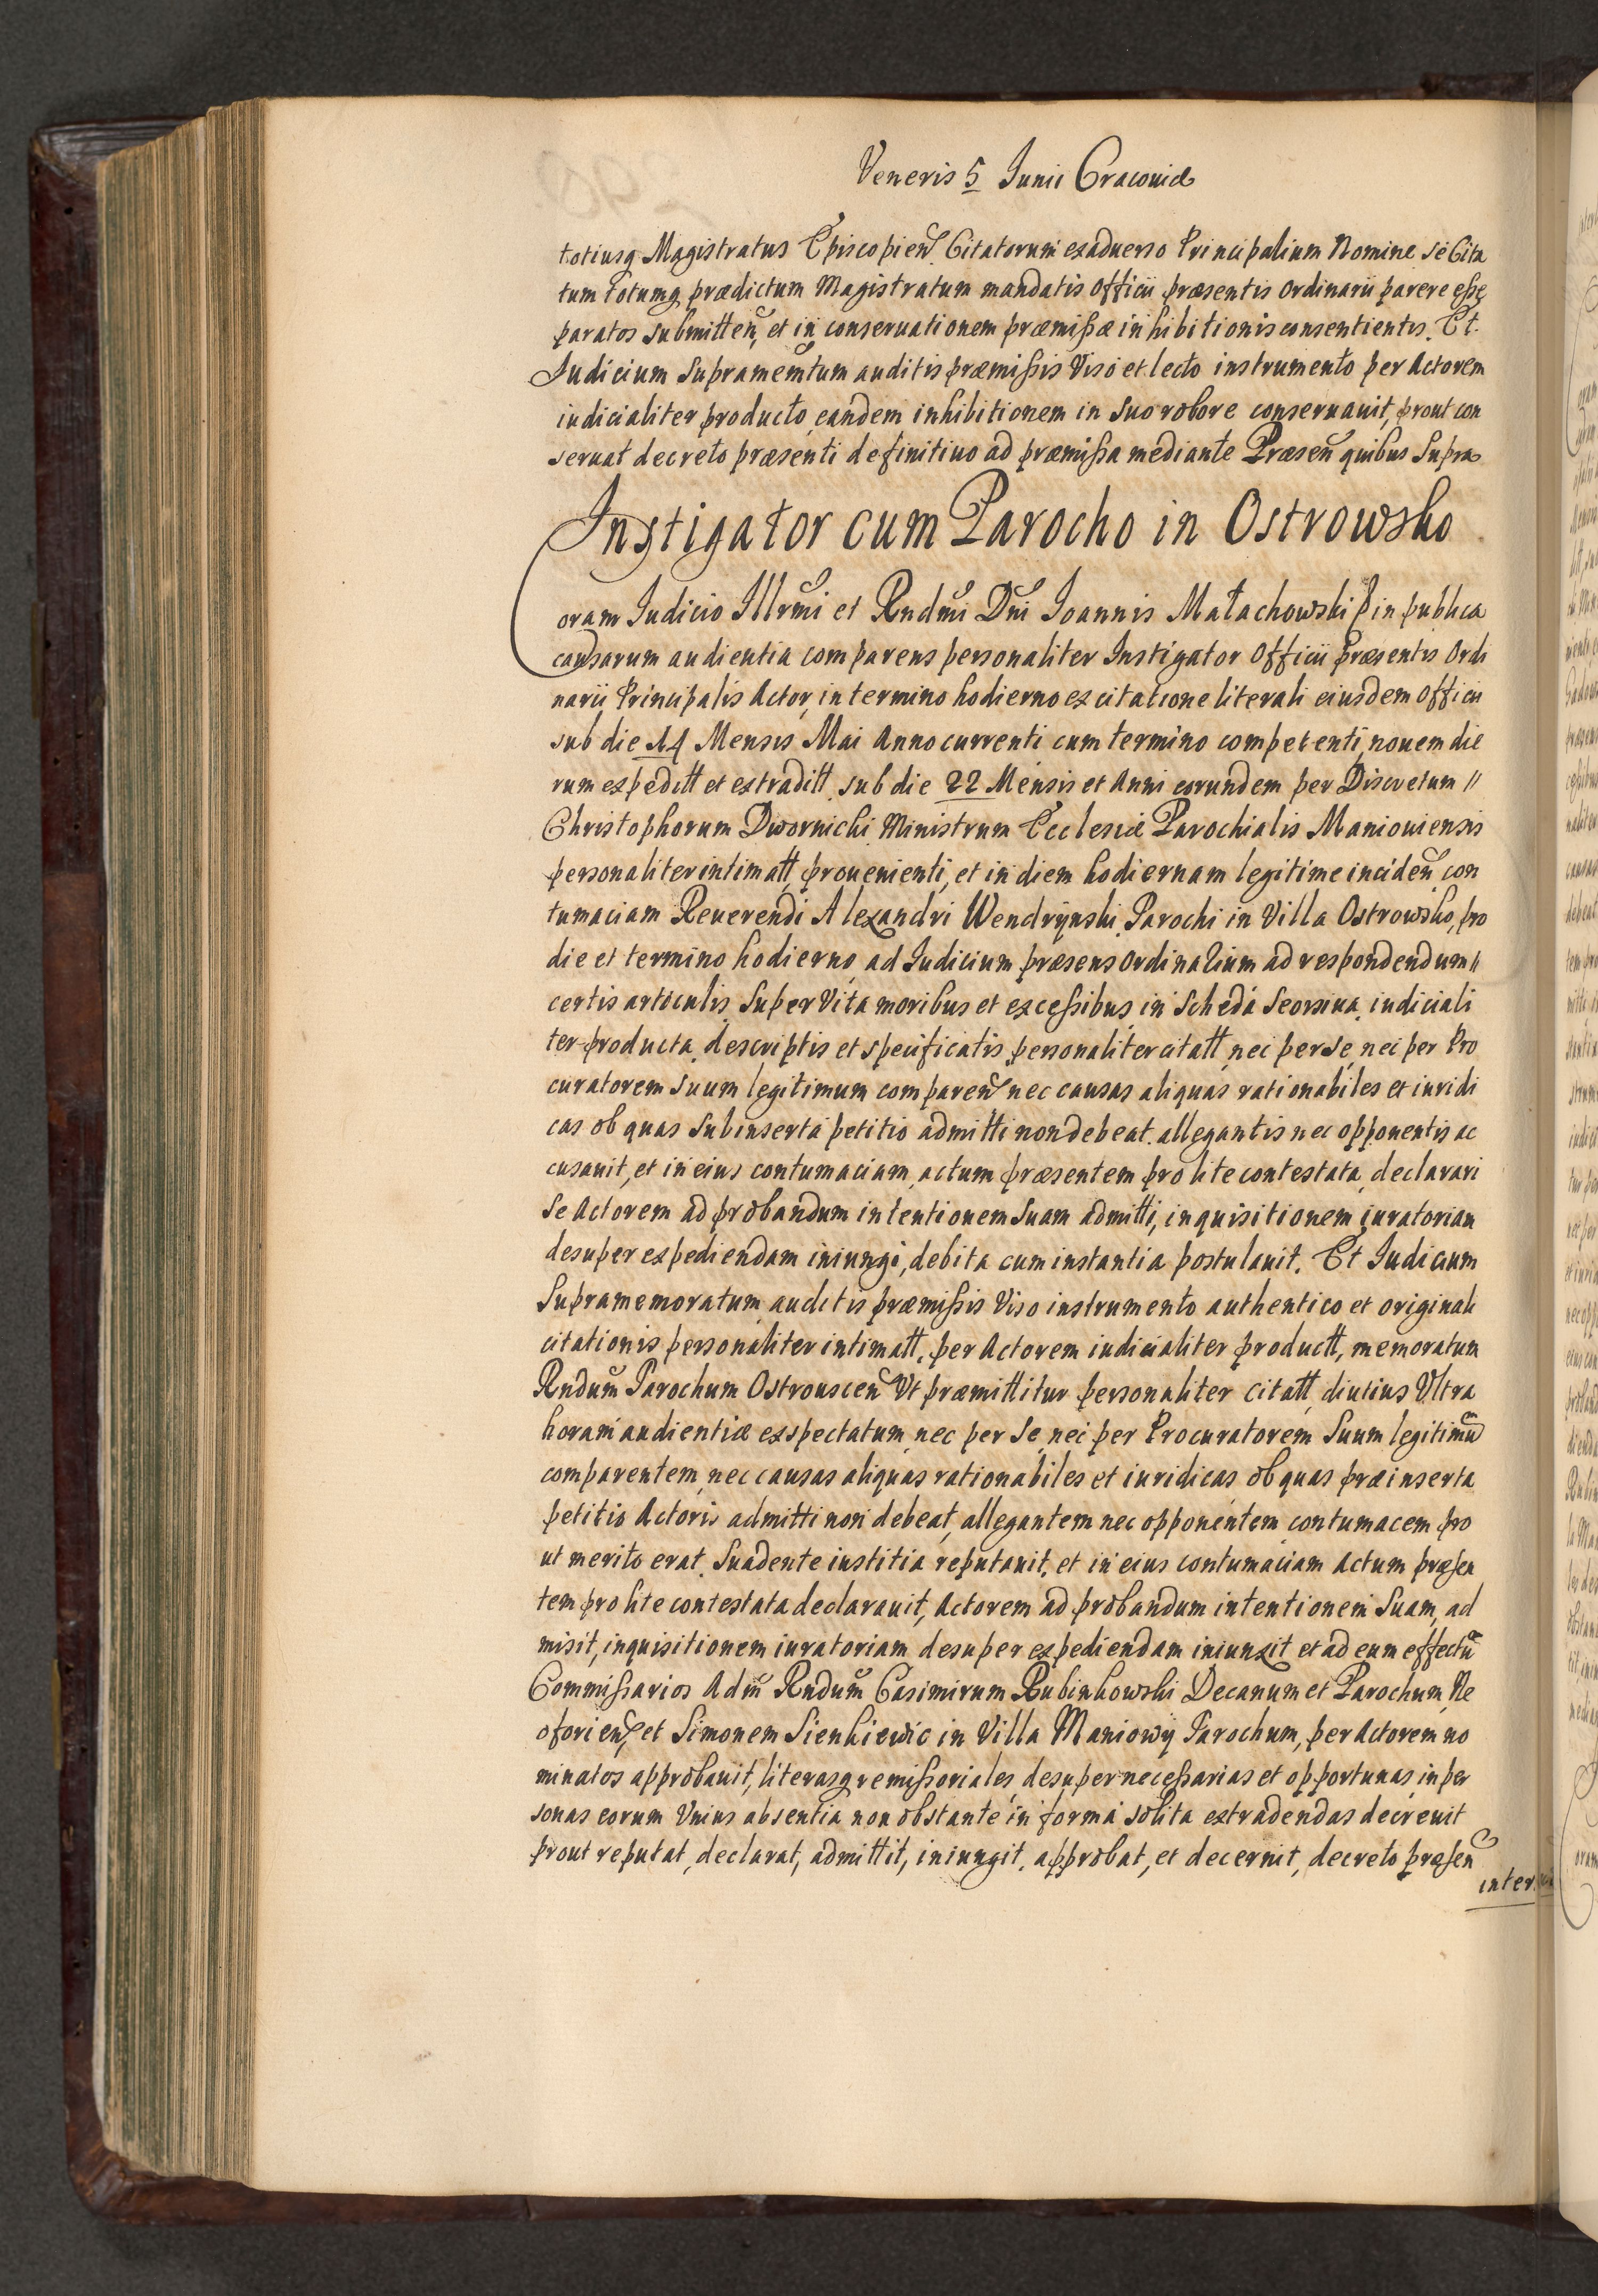 Veneris 5 Junii Cracouiæ
totiusq Magistratus Episcopien̄ Citatorum exaduerso Principalium Nomine se Cita
tum totumq prædictum Magistratum mandatis Officii præsentis Ordinarii parere eße
paratos submitten̄, et in conseruationem præmißæ inhibitionis consentientis. Et
Judicium Supramemtum auditis præmißis Viso et lecto instrumento per Actorem
iudicialiter producto, eandem inhibitionem in suo robore conseruauit, prout con
seruat decreto præsenti definitiuo ad præmißa mediante Præsen̄ quibus Supra
Instigator cum Parocho in Ostrowsko
Coram Judicio Illrm̄i et Rndm̄i Dn̄i Joannis Małachowski P in publica
causarum audientia comparens personaliter Instigator Officii Præsentis Ordi
narii Principalis Actor, in termino hodierno ex citatione literali eiusdem Officii
sub die 14 Mensis Mai Anno currenti cum termino competenti, nouem die
rum expeditt et extraditt, sub die 22 Mensis et Anni eorundem per Discretum //
Christophorum Dwornicki Ministrum Ecclesiæ Parochialis Maniouiensis
personaliter intimatt, prouenienti, et in diem hodiernam legitime inciden̄ con
tumaciam Reuerendi Alexandri Wendrÿnski Parochi in Villa Ostrowsko, pro
die et termino hodierno, ad Judicium præsens Ordinarium ad respondendum //
certis articulis, Super Vita moribus et exceßibus, in Scheda Seorsiua, iudiciali
ter producta, descriptis et specificatis personaliter citatt, nec per se, nec per Pro
curatorem suum legitimum comparen̄ nec causas aliquas rationabiles et iuridi
cas ob quas Subinserta petitio admitti non debeat allegantis nec opponentis ac
cusauit, et in eius contumaciam, actum præsentem pro lite contestata, declarari
Se Actorem ad probandum intentionem suam admitti, inquisitionem iuratoriam
desuper expediendam iniungi, debita cum instantia postulauit. Et Judicium
Supramemoratum, auditis præmißis Viso instrumento authentico et originali
citationis personaliter intimatt, per Actorem iudicialiter productt, memoratum
Rndum̄ Parochum Ostrouscen̄ Vt præmittitur personaliter citatt, diutius Vltra
horam audientiæ exspectatum, nec per se, nec per Procuratorem Suum legitimū
comparentem, nec causas aliquas rationabiles et iuridicas ob quas præinserta
petitio Actoris admitti non debeat, allegantem nec opponentem contumacem pro
ut merito erat, Suadente iustitia reputauit, et in eius contumaciam Actum præsen
tem pro lite contestata declarauit, Actorem ad probandum intentionem Suam, ad
misit, inquisitionem iuratoriam desuper expediendam iniunxit et ad eum effectū
Commißarios Adm̄ Rndum̄ Casimirum Rubinkowski Decanum et Parochum Ne
oforien̄, et Simonem Sienkiewic in Villa Maniowÿ Parochum, per Actorem no
minatos approbauit, literasq remißoriales, desuper neceßarias et opportunas, in per
sonas eorum Vnius absentia non obstante in forma solita extradendas decreuit
prout reputat, declarat, admittit, iniungit, approbat, et decernit, decreto præsen̄
inter